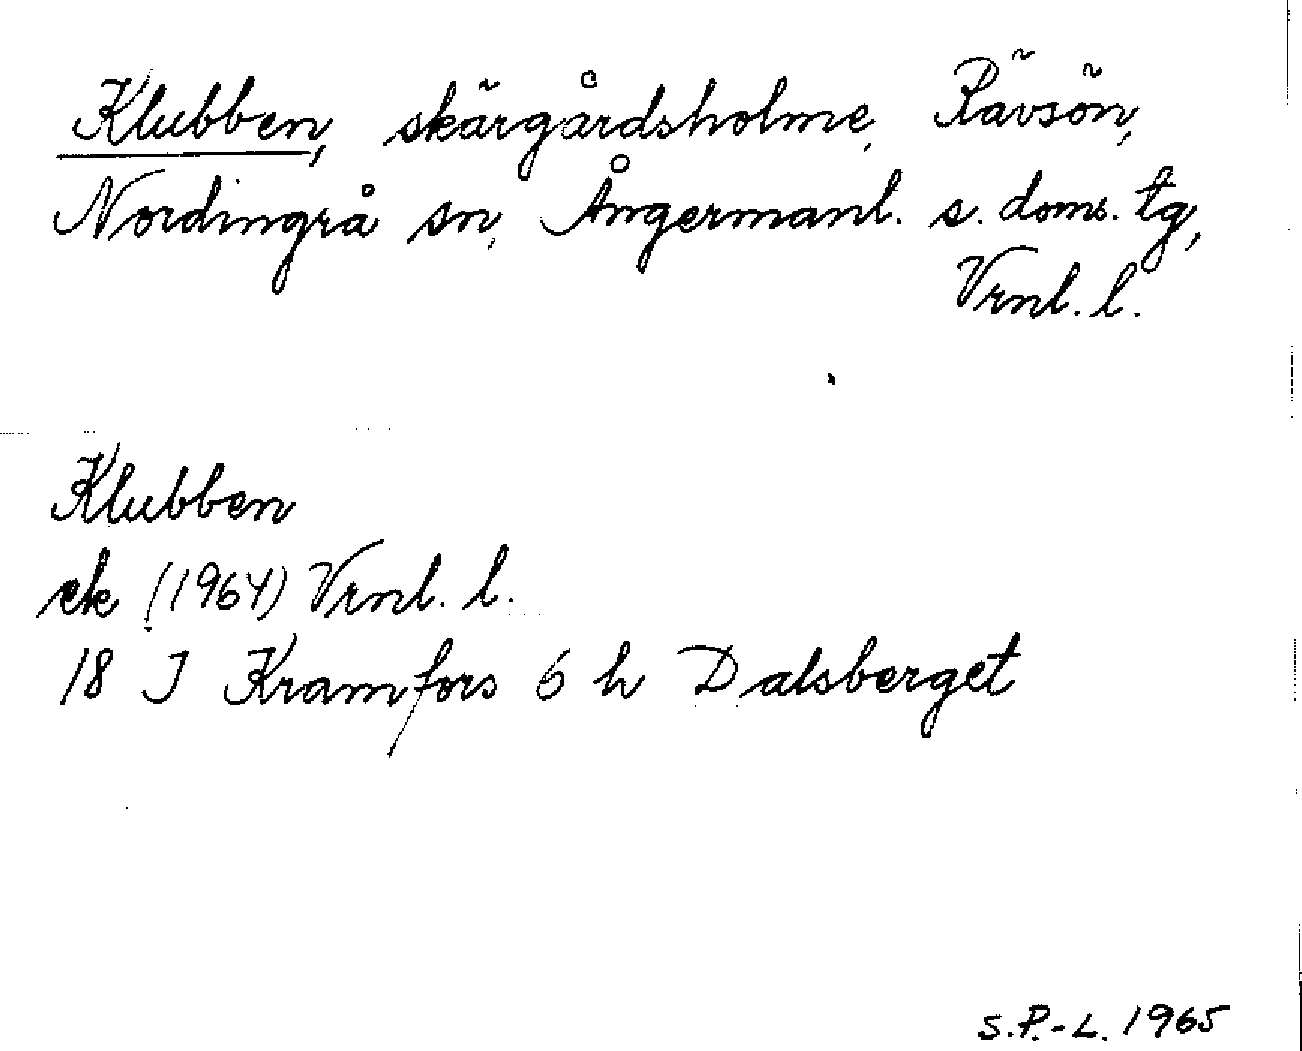 Klubben, skärgårdsholme, Rävsön,
Nordingrå sn, Ångermanl. s. doms. tg,
Vrnl. l.
Klubben
ek (1964) Vrnl. l.
18 J Kramfors 6 h Dalsberget
S.P.-L. 1965